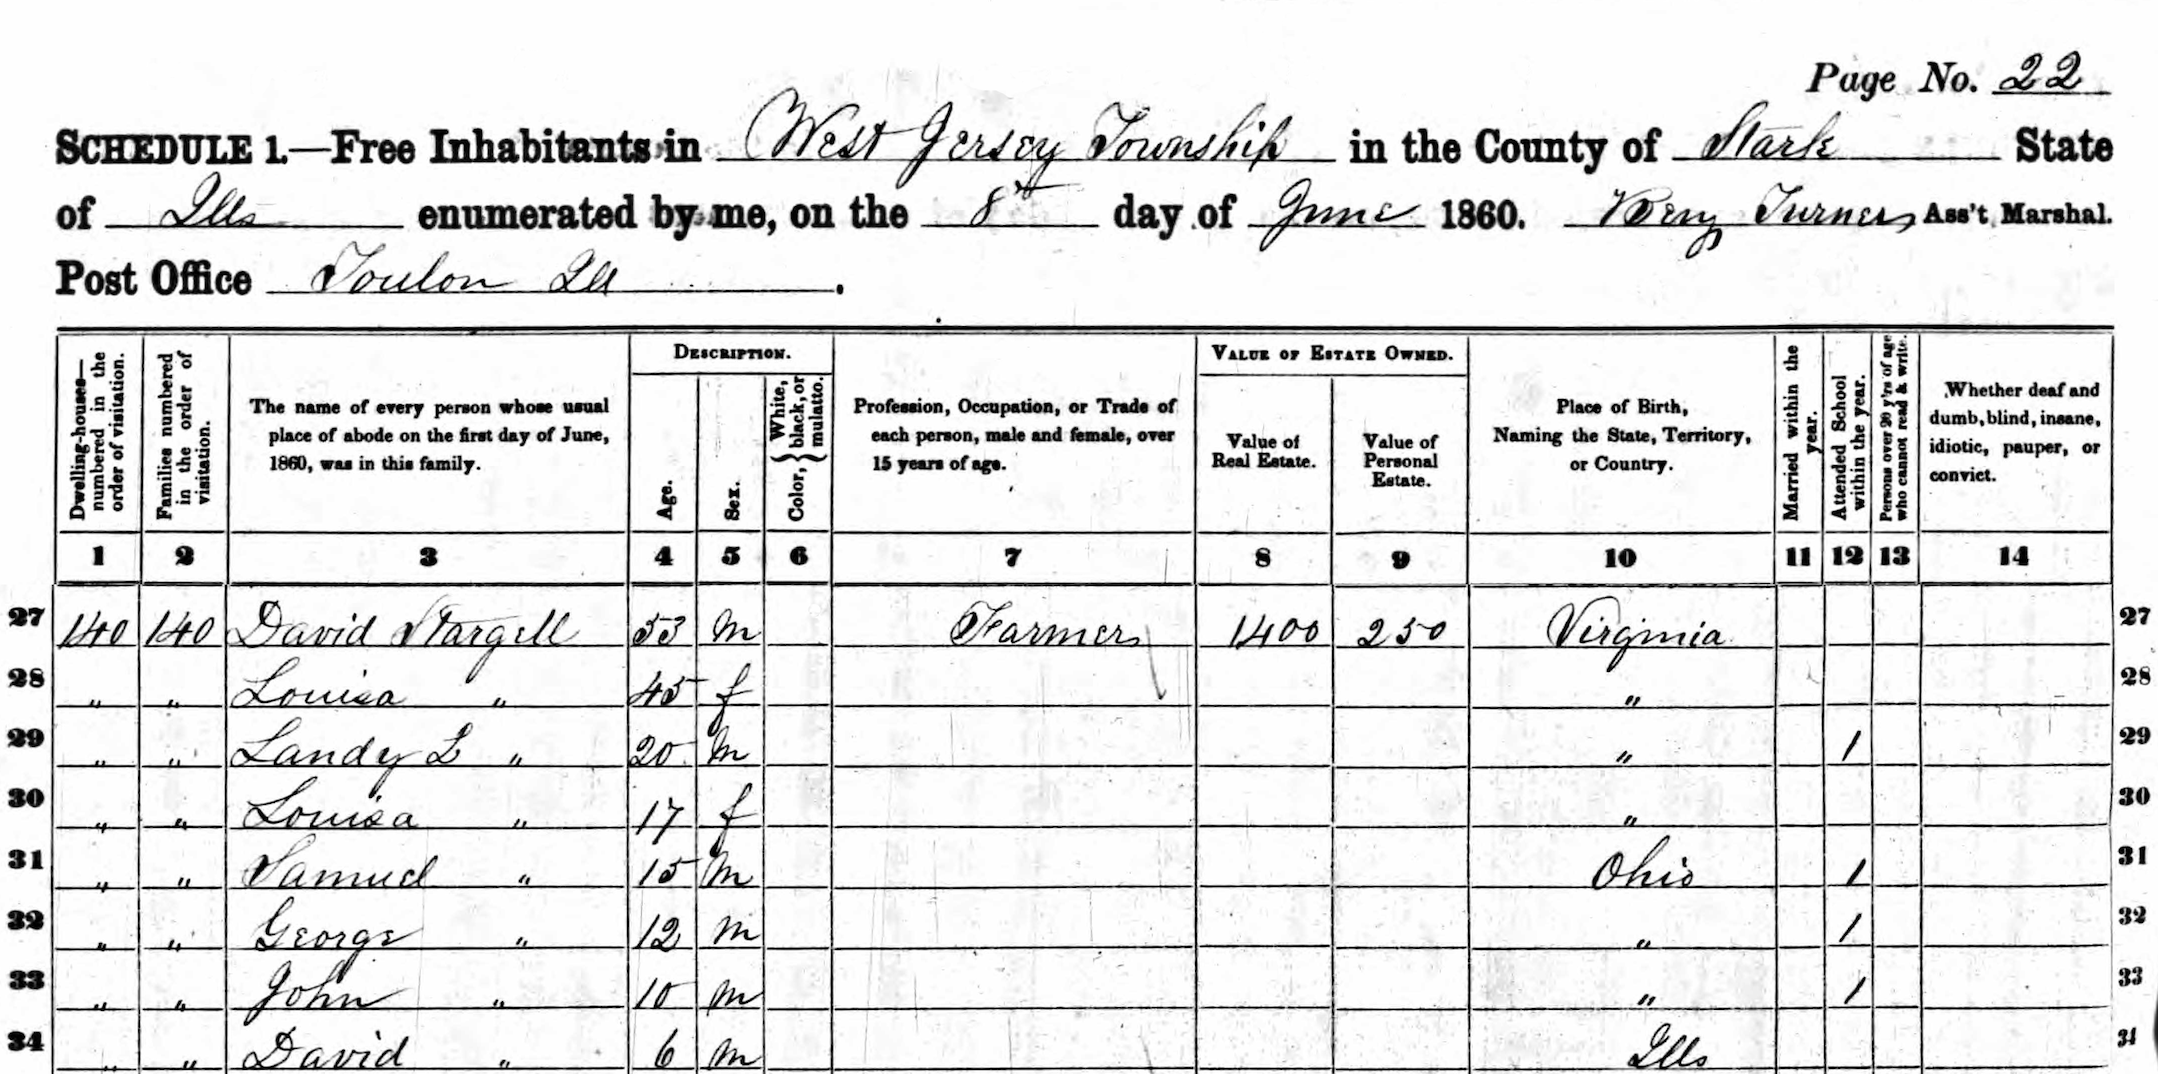 Page No. 22
SCHEDULE 1.—Free Inhabitants in West Jersey Township in the County of Stark State
of Ills enumerated by me, on the 8th day of June 1860. Turner Ass't Marshal.
Post Office Toulon Ill.
Dwelling-houses—numbered in the order of visitation.
Families numbered in the order of visitation.
The name of every person whose usual
place of abode on the first day of June,
1860, was in this family.
DESCRIPTION.
Age.
Sex.
Color, { White, black, or mulatto.
Profession, Occupation, or Trade of
each person, male and female, over
15 years of age.
VALUE OF ESTATE OWNED.
Value of
Real Estate.
Value of
Personal
Estate.
Place of Birth,
Naming the State, Territory,
or Country.
Married within the year.
Attended School within the year.
Persons over 20 y'rs of age who cannot read & write.
Whether deaf and
dumb, blind, insane,
idiotic, pauper, or
convict.
1 2 3 4 5 6 7 8 9 10 11 12 13 14
27 140 140 David Stargell 53 m Farmer 1400 250 Virginia 27
28 " " Louisa " 45 f " 28
29 " " Landy L " 20 m " 1 29
30 " " Louisa " 17 f " 30
31 " " Samuel " 15 m Ohio 1 31
32 " " George " 12 m " 1 32
33 " " John " 10 m " 1 33
34 " " David " 6 m Ills 34